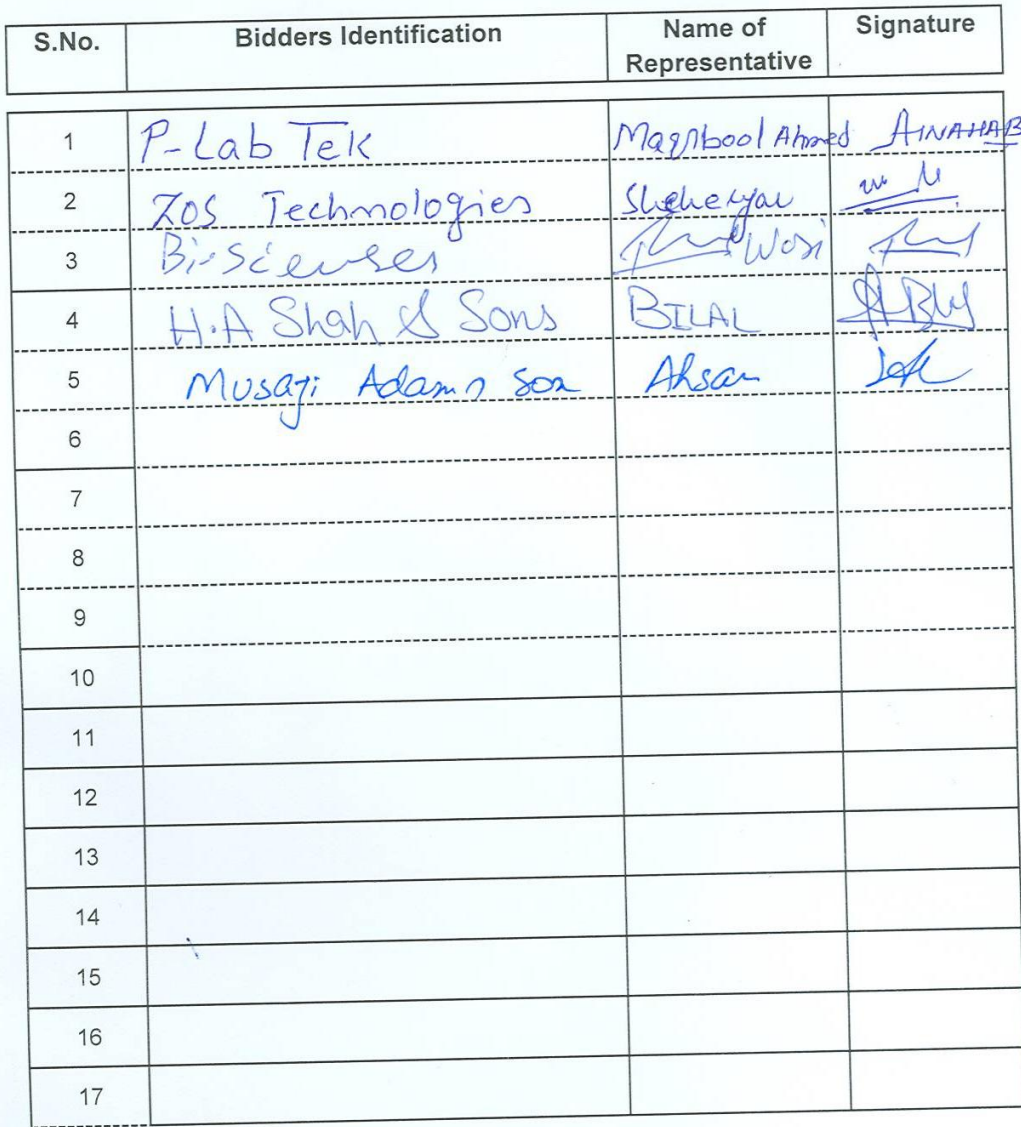 S.No. Bidders Identification Name of Representative Signature
1 P-Lab Tek Maqbool Ahmed AINAHAB
2 ZOS Technologies Sheheryar
3 Bi-Sciences Wasi
4 H.A Shah & Sons BILAL
5 Musaji Adam n Son Ahsan
6
7
8
9
10
11
12
13
14
15
16
17